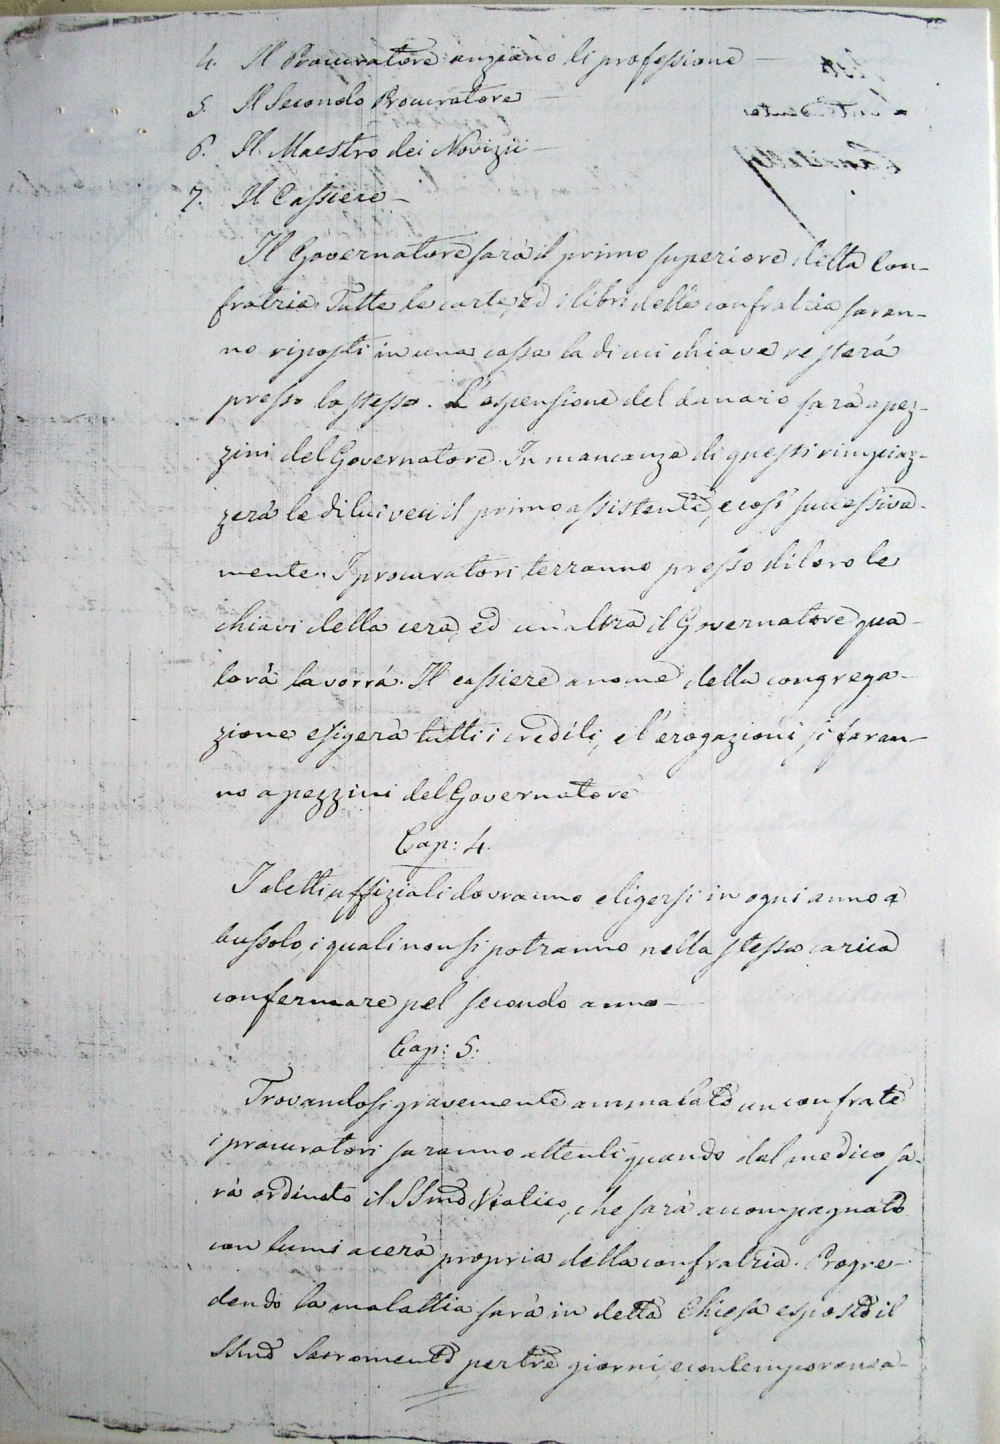 4. Il Procuratore anziano di professione
5. Il Secondo Procuratore
6. Il Maestro dei Novizii
7. Il Cassiere
Il Governatore sarà il primo superiore della Con-
fratria. Tutte le carte, ed i libri della confratria saran-
no riposti in una cassa la di cui chiave resterà
presso lo stesso. L'espensione del danaro sarà a pez-
zini del Governatore. In mancanza di questi rimpiaz-
zerà le di lui veci il primo assistente, e così successiva-
mente. I procuratori terranno presso di loro le
chiavi della cera, ed un'altra il Governatore qua-
lora la vorrà. Il cassiere a nome della congrega-
zione esigerà tutti i crediti, e l'erogazioni si faran-
no a pezzini del Governatore
Cap: 4.
I detti uffiziali dovranno eligersi in ogni anno a
bussolo, i quali non si potranno nella stessa carica
confermare pel secondo anno
Cap: 5:
Trovandosi gravemente ammalato un confrate
i procuratori saranno attenti quando dal medico sa-
rà ordinato il SSmo Viatico, che sarà accompagnato
con lumi a cera propria della confratria. Progre-
dendo la malattia sarà in detta Chiesa esposto il
SSmo Sacramento per tre giorni, e contemporanea-